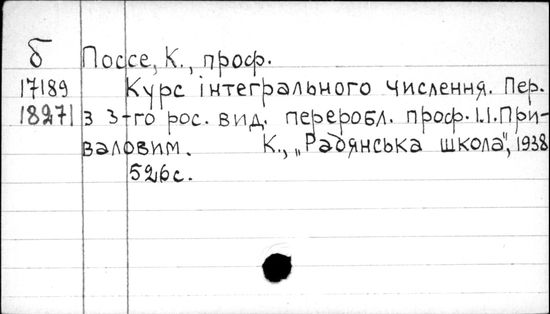 б Поссе, К., проф.
17189 Курс інтегрального числення. Пер.
18271 з 3-го рос. вид. переробл. проф. І.І.При-
валовим. К., „Радянська школа", 1938
526 с.